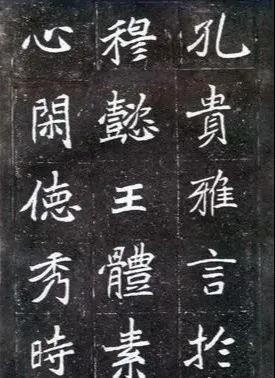 孔貴雅言扵
穆懿王體素
心閑徳秀時